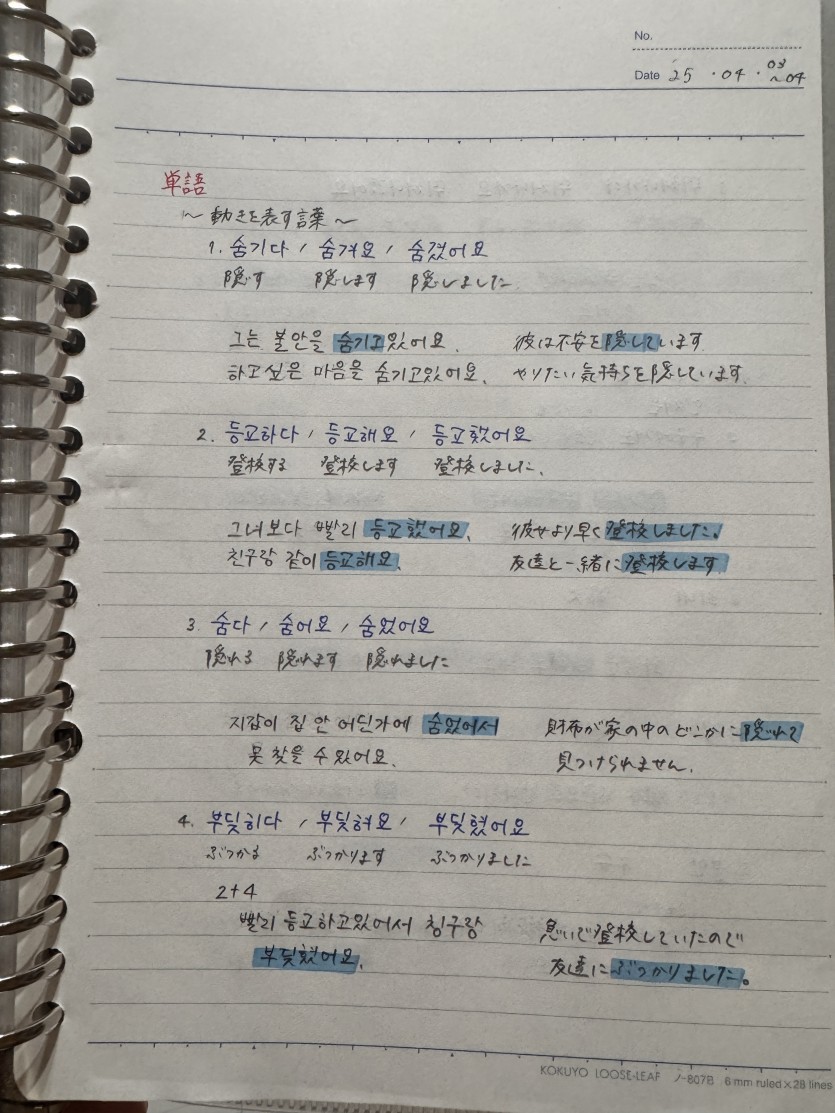 No.
Date 25 ・04・ 03 ~04
単語
～ 動きを表す言葉 ～
1. 숨기다 / 숨겨요 / 숨겼어요
隠す 隠します 隠しました
그는 불안을 숨기고있어요. 彼は不安を隠しています.
하고싶은 마음을 숨기고있어요. やりたい気持ちを隠しています.
2. 등교하다 / 등교해요 / 등교했어요
登校する 登校します 登校しました.
그녀보다 빨리 등교했어요. 彼女より早く登校しました.
친구랑 같이 등교해요. 友達と一緒に登校します
3. 숨다 / 숨어요 / 숨었어요
隠れる 隠れます 隠れました
지갑이 집 안 어딘가에 숨었어서 財布が家の中のどこかに隠れて
못 찾을 수 있어요. 見つけられません.
4. 부딪히다 / 부딪혀요 / 부딪혔어요
ぶつかる ぶつかります ぶつかりました
2+4
빨리 등교하고있어서 칭구랑 急いで登校していたので
부딪혔어요. 友達にぶつかりました。
KOKUYO LOOSE-LEAF ノ-807B 6 mm ruled×28 lines